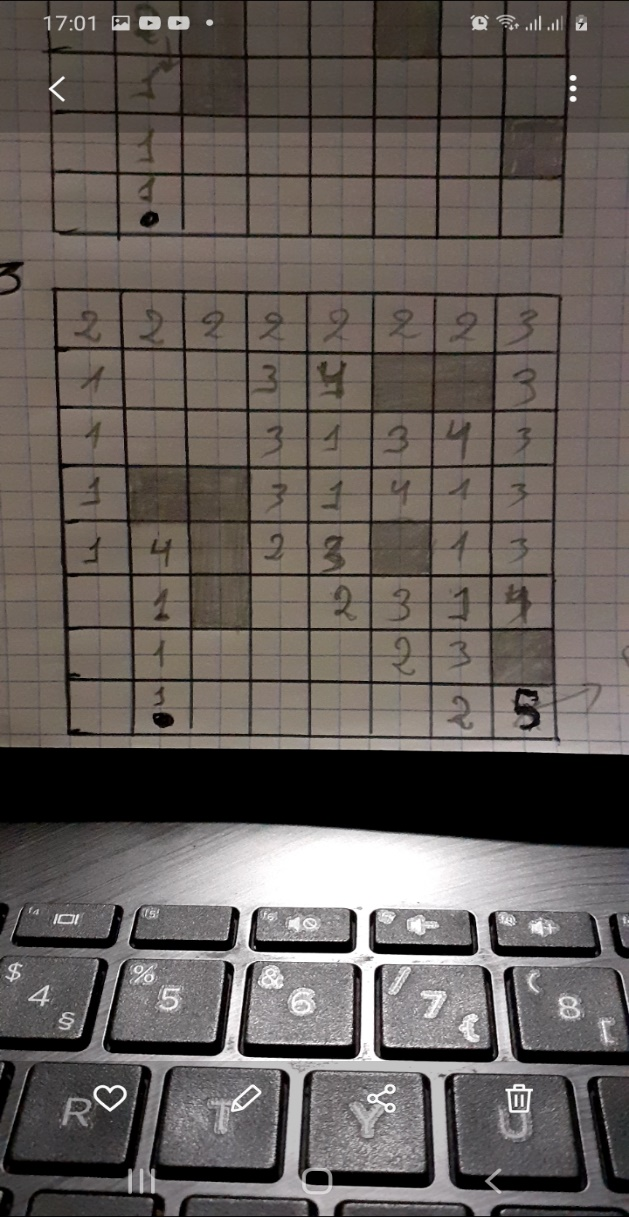 17:01
1
1
3
2 2 2 2 2 2 2 3
1 3 3
1 3 1 3 4 3
1 3 1 4 1 3
1 4 2 3 1 3
1 2 3 1 4
1 2 3
1 2 5
f4 f5 f6 f7 f8
$ 4 § % 5 & 6 / 7 € ( 8 [
R T Y U